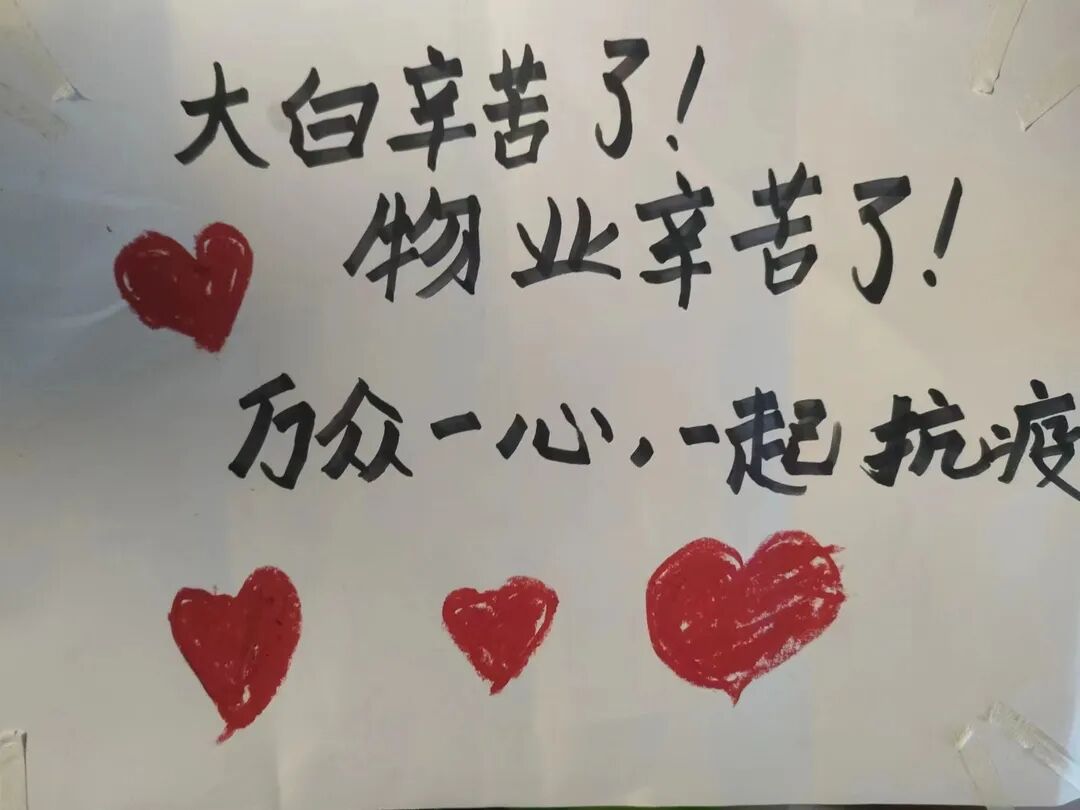 大白辛苦了!
物业辛苦了!
万众一心,一起抗疫